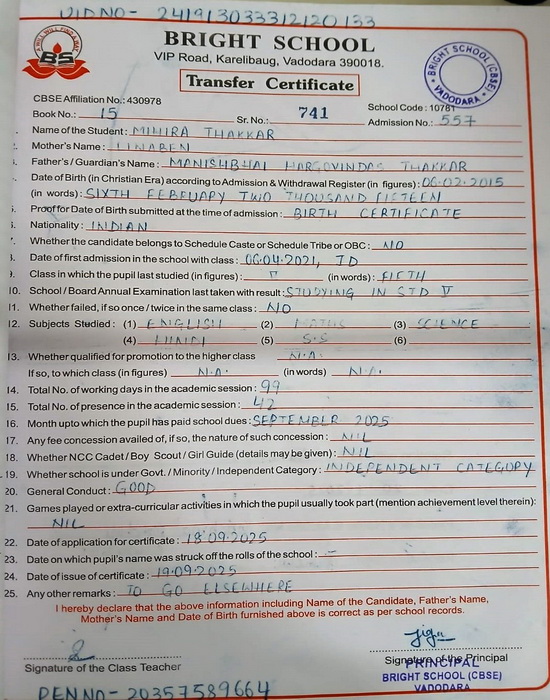 UIDNO- 241913033312120133
BRIGHT SCHOOL
VIP Road, Karelibaug, Vadodara 390018.
BS
BRIGHT SCHOOL (CBSE) VADODARA
Transfer Certificate
CBSE Affiliation No.: 430978
School Code : 10781
Book No.: 15 Sr. No.: 741 Admission No.: 557
Name of the Student: MIHIRA THAKKAR
Mother's Name: LINABEN
Father's / Guardian's Name: MANISHBHAI HARGOVINDAS THAKKAR
Date of Birth (in Christian Era) according to Admission & Withdrawal Register (in figures): 06-02-2015
(in words): SIXTH FEBRUARY TWO THOUSAND FIFTEEN
Proof for Date of Birth submitted at the time of admission: BIRTH CERTIFICATE
Nationality: INDIAN
Whether the candidate belongs to Schedule Caste or Schedule Tribe or OBC: NO
Date of first admission in the school with class: 06.04.2021, JD
Class in which the pupil last studied (in figures): V (in words): FIFTH
10. School / Board Annual Examination last taken with result: STUDYING IN STD V
11. Whether failed, if so once / twice in the same class: NO
12. Subjects Studied: (1) ENGLISH (2) MATHS (3) SCIENCE
(4) HINDI (5) S.S (6)
13. Whether qualified for promotion to the higher class N.A.
If so, to which class (in figures) N.A. (in words) N.A.
14. Total No. of working days in the academic session: 99
15. Total No. of presence in the academic session: 42
16. Month upto which the pupil has paid school dues: SEPTEMBER 2025
17. Any fee concession availed of, if so, the nature of such concession: NIL
18. Whether NCC Cadet / Boy Scout / Girl Guide (details may be given): NIL
19. Whether school is under Govt. / Minority / Independent Category: INDEPENDENT CATEGORY
20. General Conduct: GOOD
21. Games played or extra-curricular activities in which the pupil usually took part (mention achievement level therein):
NIL
22. Date of application for certificate: 18.09.2025
23. Date on which pupil's name was struck off the rolls of the school: -
24. Date of issue of certificate: 19.09.2025
25. Any other remarks: TO GO ELSEWHERE
I hereby declare that the above information including Name of the Candidate, Father's Name,
Mother's Name and Date of Birth furnished above is correct as per school records.
Signature of the Class Teacher
Signature of the Principal
PRINCIPAL
BRIGHT SCHOOL (CBSE)
VADODARA
PENNO- 20357589664